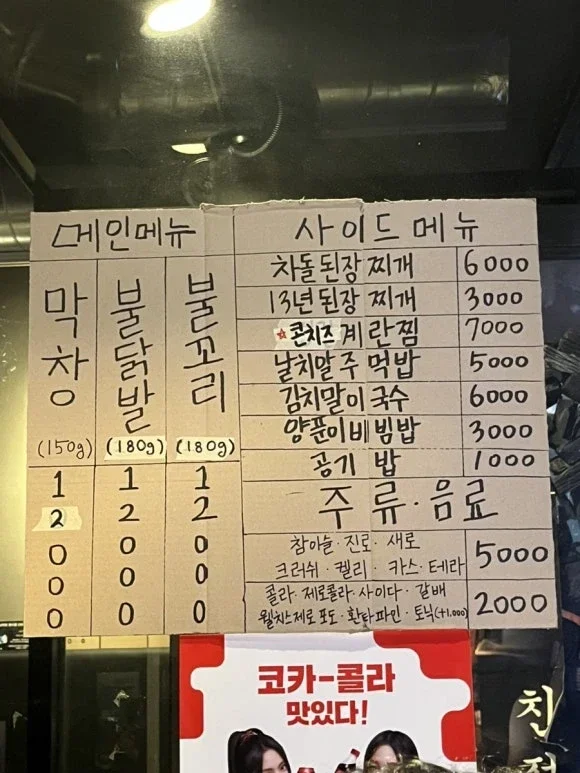 메인메뉴
막창
(150g)
12000
불닭발
(180g)
12000
불꼬리
(180g)
12000
사이드메뉴
차돌된장찌개 6000
13년된장찌개 3000
☆콘치즈계란찜 7000
날치말주먹밥 5000
김치말이국수 6000
양푼이비빔밥 3000
공기밥 1000
주류·음료
참이슬·진로·새로
크러쉬·켈리·카스·테라 5000
콜라·제로콜라·사이다·갈배
웰치스제로포도·환타파인·토닉(+1,000) 2000
코카-콜라
맛있다!
친